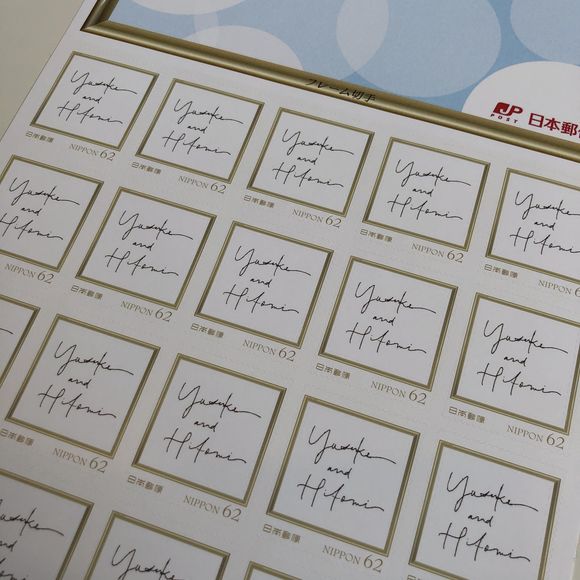 フレーム切手
JP
POST 日本郵
Yusuke
and
Hitomi
日本郵便 NIPPON 62
Yusuke
and
Hitomi
日本郵便 NIPPON 62
Yusuke
and
Hitomi
日本郵便 NIPPON 62
Yusuke
and
Hitomi
日本郵便 NIPPON 62
Yusuke
and
Hitomi
日本郵便 NIPPON
Yusuke
and
Hitomi
NIPPON 62
Yusuke
and
Hitomi
日本郵便 NIPPON 62
Yusuke
and
Hitomi
日本郵便 NIPPON 62
Yusuke
and
Hitomi
日本郵便 NIPPON 62
Yusuke
and
Hitomi
日本郵便 NIPPON 62
Yusuke
and
Hitomi
日本郵便 NIPPON 62
Yusuke
and
Hitomi
日本郵便 NIPPON 62
Yusuke
and
Hitomi
日本郵便 NIPPON 62
Yusuke
and
Hitomi
Yusuke
and
Yusuke